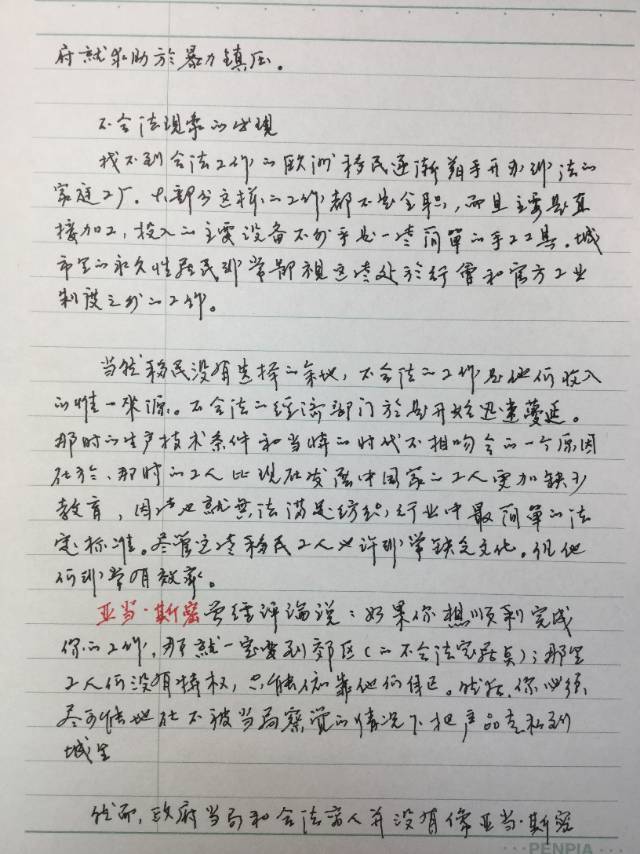 府就求助於暴力镇压。
不合法现象的出现
找不到合法工作的欧洲移民逐渐着手开办非法的
家庭工厂。大部分这样的工作都不是全职，而且主要是直
接加工，投入的主要设备不外乎是一些简单的手工工具。城
市里的永久性居民非常鄙视这些处於行会和官方工业
制度之外的工作。
当然移民没有选择的余地，不合法的工作是他们收入
的惟一来源。不合法的经济部门於是开始迅速蔓延。
那时的生产技术条件和当时的时代不相吻合的一个原因
在於，那时的工人比现在发展中国家的工人更加缺少
教育，因此也就無法满足纺织行业中最简单的法
定标准。尽管这些移民工人也许非常缺乏文化，但他
们非常有效率。
亚当·斯密曾经评论说：如果你想顺利完成
你的工作，那就一定要到郊区（的不合法定居点）；那里
工人们没有特权，只能依靠他们自己。然后，你必须
尽可能地在不被当局察觉的情况下把产品走私到
城里
然而，政府当局和合法商人并没有像亚当·斯密
PENPIA